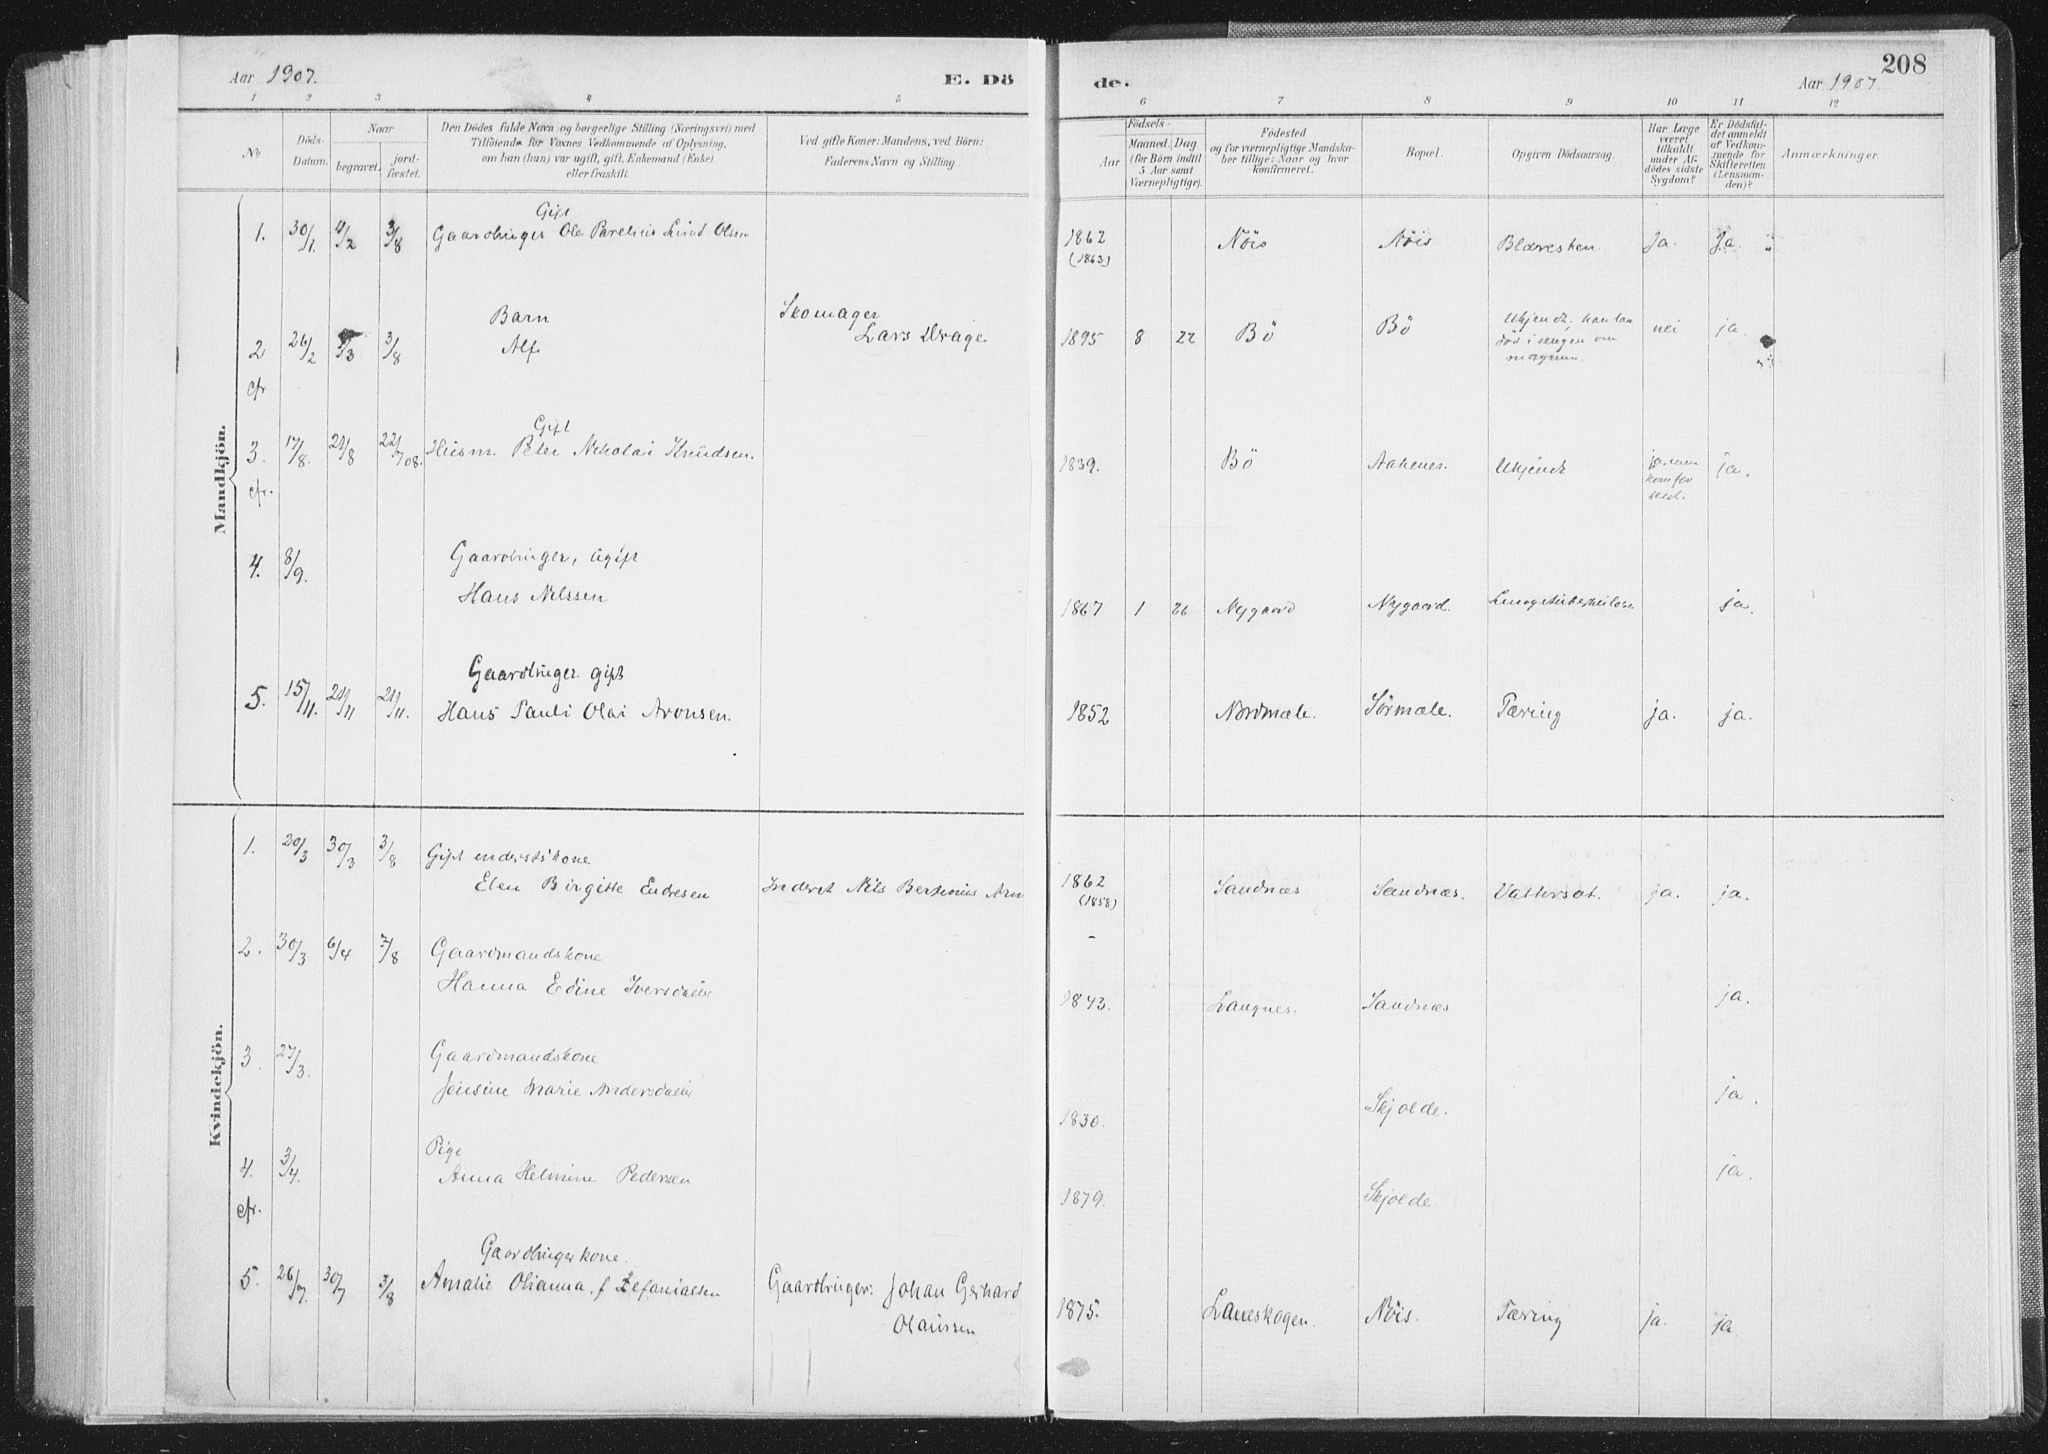 Aar 1907.
E. Dö
de.
Aar 1907.
208
1 2 3 4 5 6 7 8 9 10 11 12
No
Döds-
Datum.
Naar
begravet.
jord-
fæstet.
Den Dödes fulde Navn og borgerlige Stilling (Næringsvei) med
Tilföiende for Voxnes Vedkommende af Oplysning,
om han (hun) var ugift, gift, Enkemand (Enke)
eller fraskilt.
Ved gifte Koner: Mandens, ved Börn:
Faderens Navn og Stilling
Födsels-
Aar
Maaned. Dag
(for Börn indtil
5 Aar samt
Værnepligtige).
Födested
og for værnepligtige Mandska-
ber tillige: Naar og hvor
konfirmeret.
Bopæl.
Opgiven Dödsaarsag.
Har Læge
været
tilkaldt
under Af-
dödes sidste
Sygdom?
Er Dödsfal-
det anmeldt
af Vedkom-
mende for
Skifteretten
(Lensman-
den)?
Anmærkninger.
Mandkjön.
Gift
1. 30/1 4/2 3/8 Gaardbruger Ole Parelius Lind Olsen 1862 Nöis Nöis Blæresten Ja. Ja.
(1863)
Barn Skomager
2 26/2 /3 3/8 Alf Lars Vrage 1895 8 22 Bö Bö Ukjendt, nei ja.
död i sengen om
morgenen.
cfr
Gift
3. 17/8. 2/8 22/7 08. Husm. Peter Nikolai Knudsen. 1839. Bö Ukjendt ja, men ja.
kom for
sent.
cfr.
4. 8/9. Gaardbruger, ugift
Hans Nilssen 1867 1 26 Nygaard Nygaard. ja.
Gaardbruger gift
5. 15/11. 21/11 21/11. Hans Pauli Olai Aronsen. 1852 Nordmæle. Sörmæle. Tæring ja. ja.
Kvindekjön.
1. 20/3 30/3 3/8 Gift inderstkone
Elen Birgitte Endresen Inderst Nils Bertinius Arn 1862 Sandnæs Sandnæs. Vattersot. ja. ja.
(1858)
2. 30/3 6/4 7/8 Gaardmandskone
Hanna Edine Iversdatter 1843. Langnes. Sandnæs ja.
3. 27/3. Gaardmandskone
Jensine Marie Andersdatter 1830. Skjolde. ja.
4. 3/4. Pige
Anna Helmine Pedersen 1879. Skjolde. ja.
cfr.
Gaardbrugerkone.
5. 26/7. 30/7 3/8 Amalie Olianna f Zefaniassen Gaardbruger. Johan Gerhard
Olaussen 1875. Laneskogen. Nöis. Tæring ja. ja.